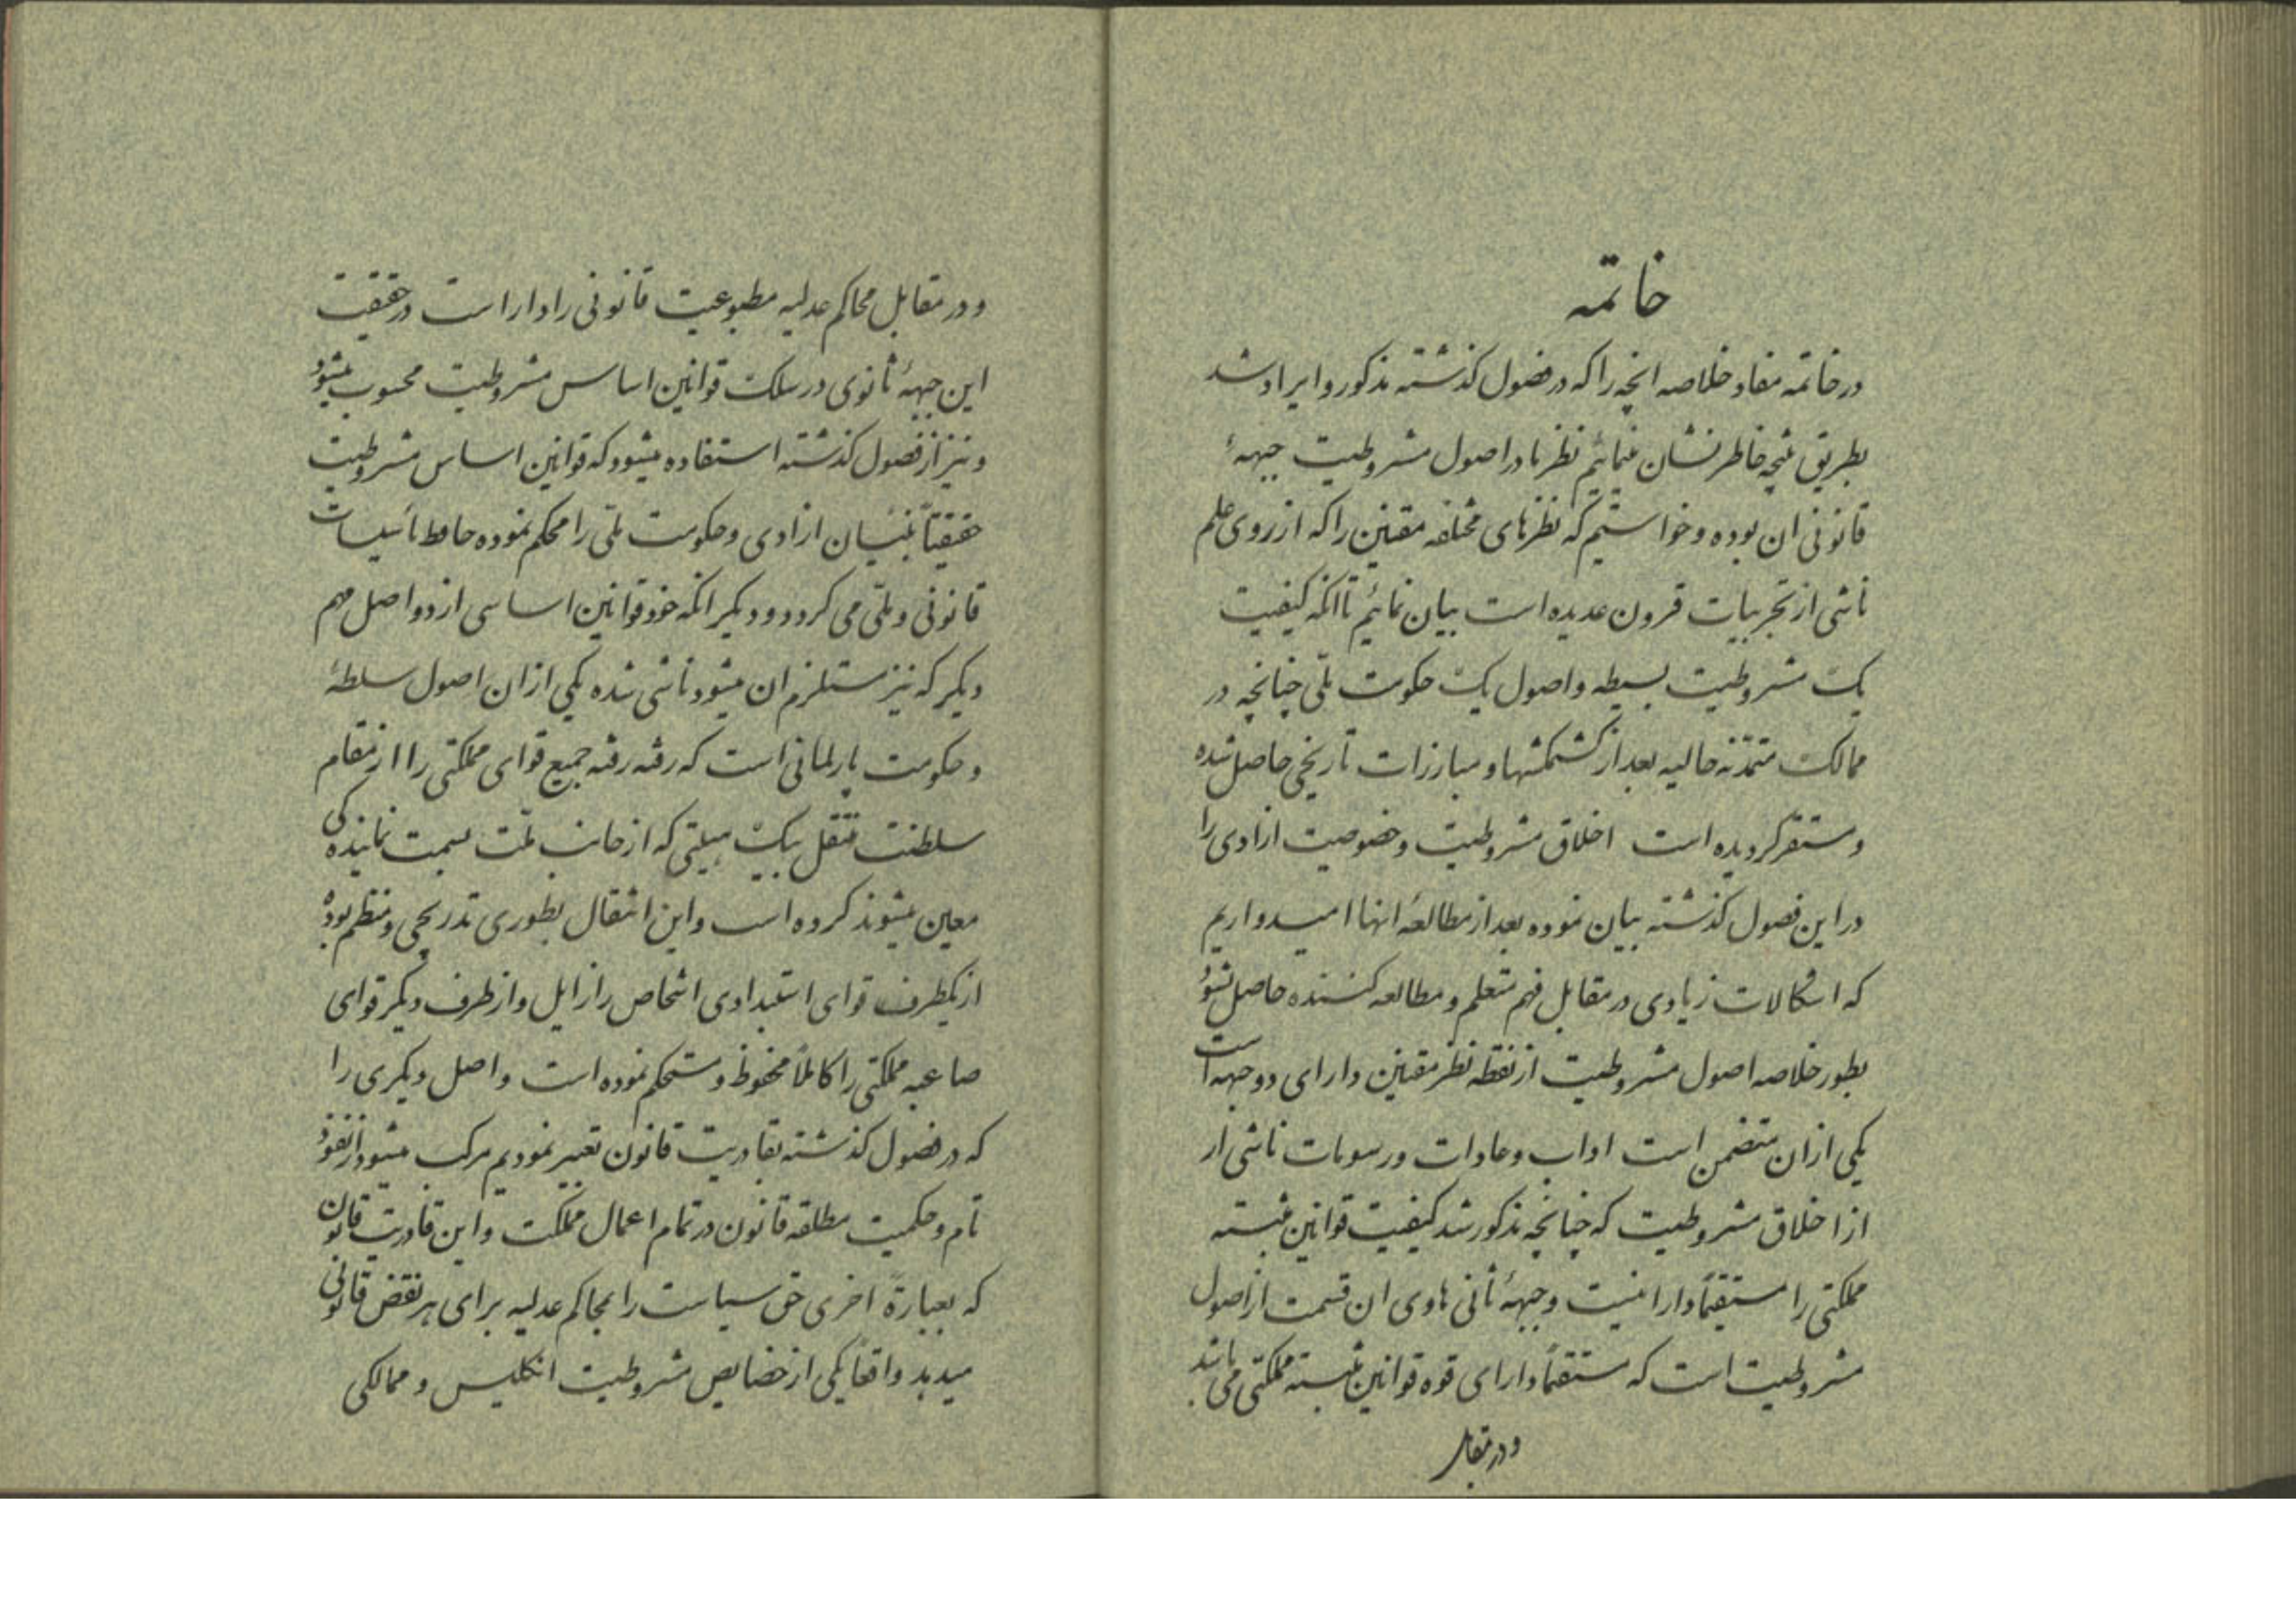 خاتمه
در خاتمه مفاد و خلاصه انچه را که در فصول کذشته مذکور و ایراد شد
بطریق نتیجه خاطر نشان مینمائیم نظر ما در اصول مشروطیت جبههٔ
قانونی ان بوده و خواستیم که نظرهای مختلفه مقننین را که از روی علم
ناشی از تجربیات قرون عدیده است بیان نمائیم تا انکه کیفیت
یک مشروطیت بسیطه و اصول یک حکومت ملّی چنانچه در
ممالک متمدّنه حالیه بعد از کشمکشها و مبارزات تاریخی حاصل شده
و مستقر کردیده است اخلاق مشروطیت و خصوصیت ازادی را
در این فصول کذشته بیان نموده بعد از مطالعهٔ انها امیدواریم
که اشکالات زیادی در مقابل فهم متعلم و مطالعه کننده حاصل نشود
بطور خلاصه اصول مشروطیت از نقطه نظر مقننین دارای دو جبهه است
یکی از ان متضمن است اداب و عادات و رسومات ناشی از
از اخلاق مشروطیت که چنانچه مذکور شد کیفیت قوانین مثبته
مملکتی را مستقیماً دارا نیست و جبههٔ ثانی هاوی ان قسمت از اصول
مشروطیت است که مستقیماً دارای قوه قوانین مثبته مملکتی می باشد
و در مقابل
و در مقابل محاکم عدلیه مطبوعیت قانونی را دارا است در حقیقت
این جبههٔ ثانوی در سلک قوانین اساس مشروطیت محسوب میشود
و نیز از فصول کذشته استفاده میشود که قوانین اساس مشروطیت
حقیقتاً بنیان ازادی و حکومت ملّی را محکم نموده حافظ تاسیسات
قانونی و ملّی می کردد و دیکر انکه خود قوانین اساسی از دو اصل مهم
دیکر که نیز مستلزم ان میشود ناشی شده یکی از ان اصول سلطهٔ
و حکومت پارلمانی است که رفته رفته جمیع قوای مملکتی را از مقام
سلطنت منتقل بیک هیئتی که از جانب ملّت بسمت نمایندکی
معین میشوند کرده است و این انتقال بطوری تدریجی و منظم بوده
از یکطرف قوای استبدادی اشخاص را زایل و از طرف دیکر قوای
صاعبه مملکتی را کاملاً محفوظ و مستحکم نموده است و اصل دیکری را
که در فصول کذشته بقادریت قانون تعبیر نمودیم مرکب میشود از نفوذ
تام و حکمیت مطلقه قانون در تمام اعمال مملکت و این قادریت قانون
که بعبارة اخری حق سیاست را بمحاکم عدلیه برای هر نقض قانونی
میدهد واقعاً یکی از خصایص مشروطیت انکلیس و ممالکی